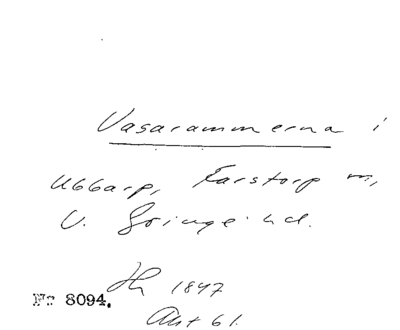 Vasarammerna i
Ubbarp, Karstorp m,
V. Göinge hd.
1847
No 8094.
Akt 61.